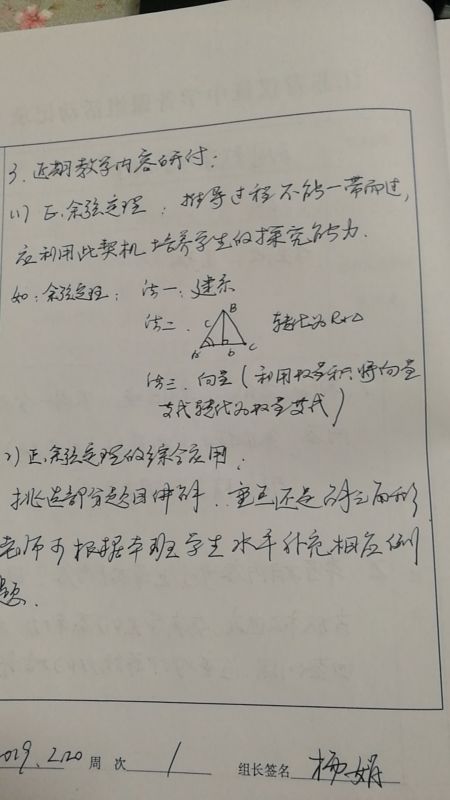 3. 近期教学内容研讨:
(1) 正.余弦定理, 推导过程不能一带而过,
应利用此契机培养学生的探究能力.
如:余弦定理: 法一:建系
法二. 转化为Rt△
B
c
A b C
法三. 向量(利用数量积将向量
式转化为数量式)
2) 正.余弦定理的综合应用.
挑选部分题目讲解.重点还是解三角形
老师可根据本班学生水平补充相应例
题.
2019.2.20 周 次 1 组长签名 杨娟